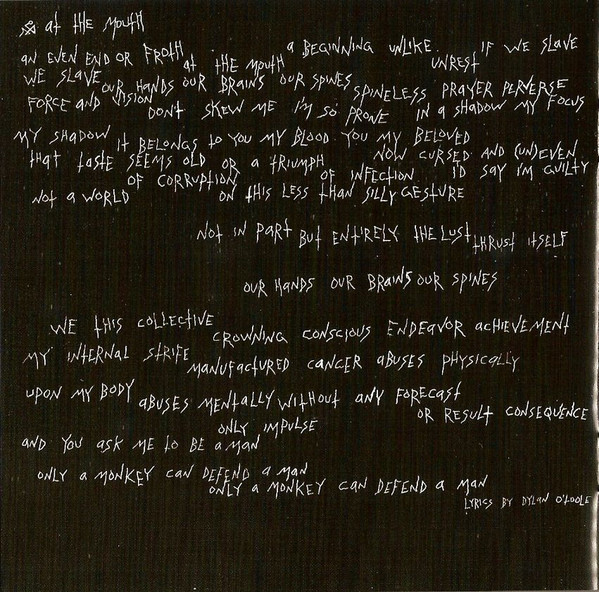 at the mouth
an even end or froth at the mouth a beginning unlike unrest if we slave
we slave our hands our brains our spines spineless prayer perverse
force and vision don't skew me i'm so prone in a shadow my focus
my shadow it belongs to you my blood you my beloved
that taste seems old or a triumph now cursed and (un)even
of corruption of infection i'd say i'm guilty
not a world on this less than silly gesture
not in part but entirely the lust thrust itself
our hands our brains our spines
we this collective crowning conscious endeavor achievement
my internal strife manufactured cancer abuses physically
upon my body abuses mentally without any forecast
or result consequence
only impulse
and you ask me to be a man
only a monkey can defend a man
only a monkey can defend a man
lyrics by Dylan O'Toole